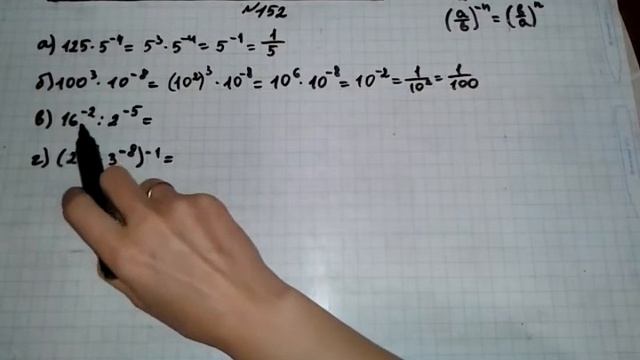 №152
(a/b)^-n = (b/a)^n
а) 125 · 5^-4 = 5^3 · 5^-4 = 5^-1 = 1/5
б) 100^3 · 10^-8 = (10^2)^3 · 10^-8 = 10^6 · 10^-8 = 10^-2 = 1/10^2 = 1/100
в) 16^-2 : 2^-5 =
г) (2 3^-8)^-1 =